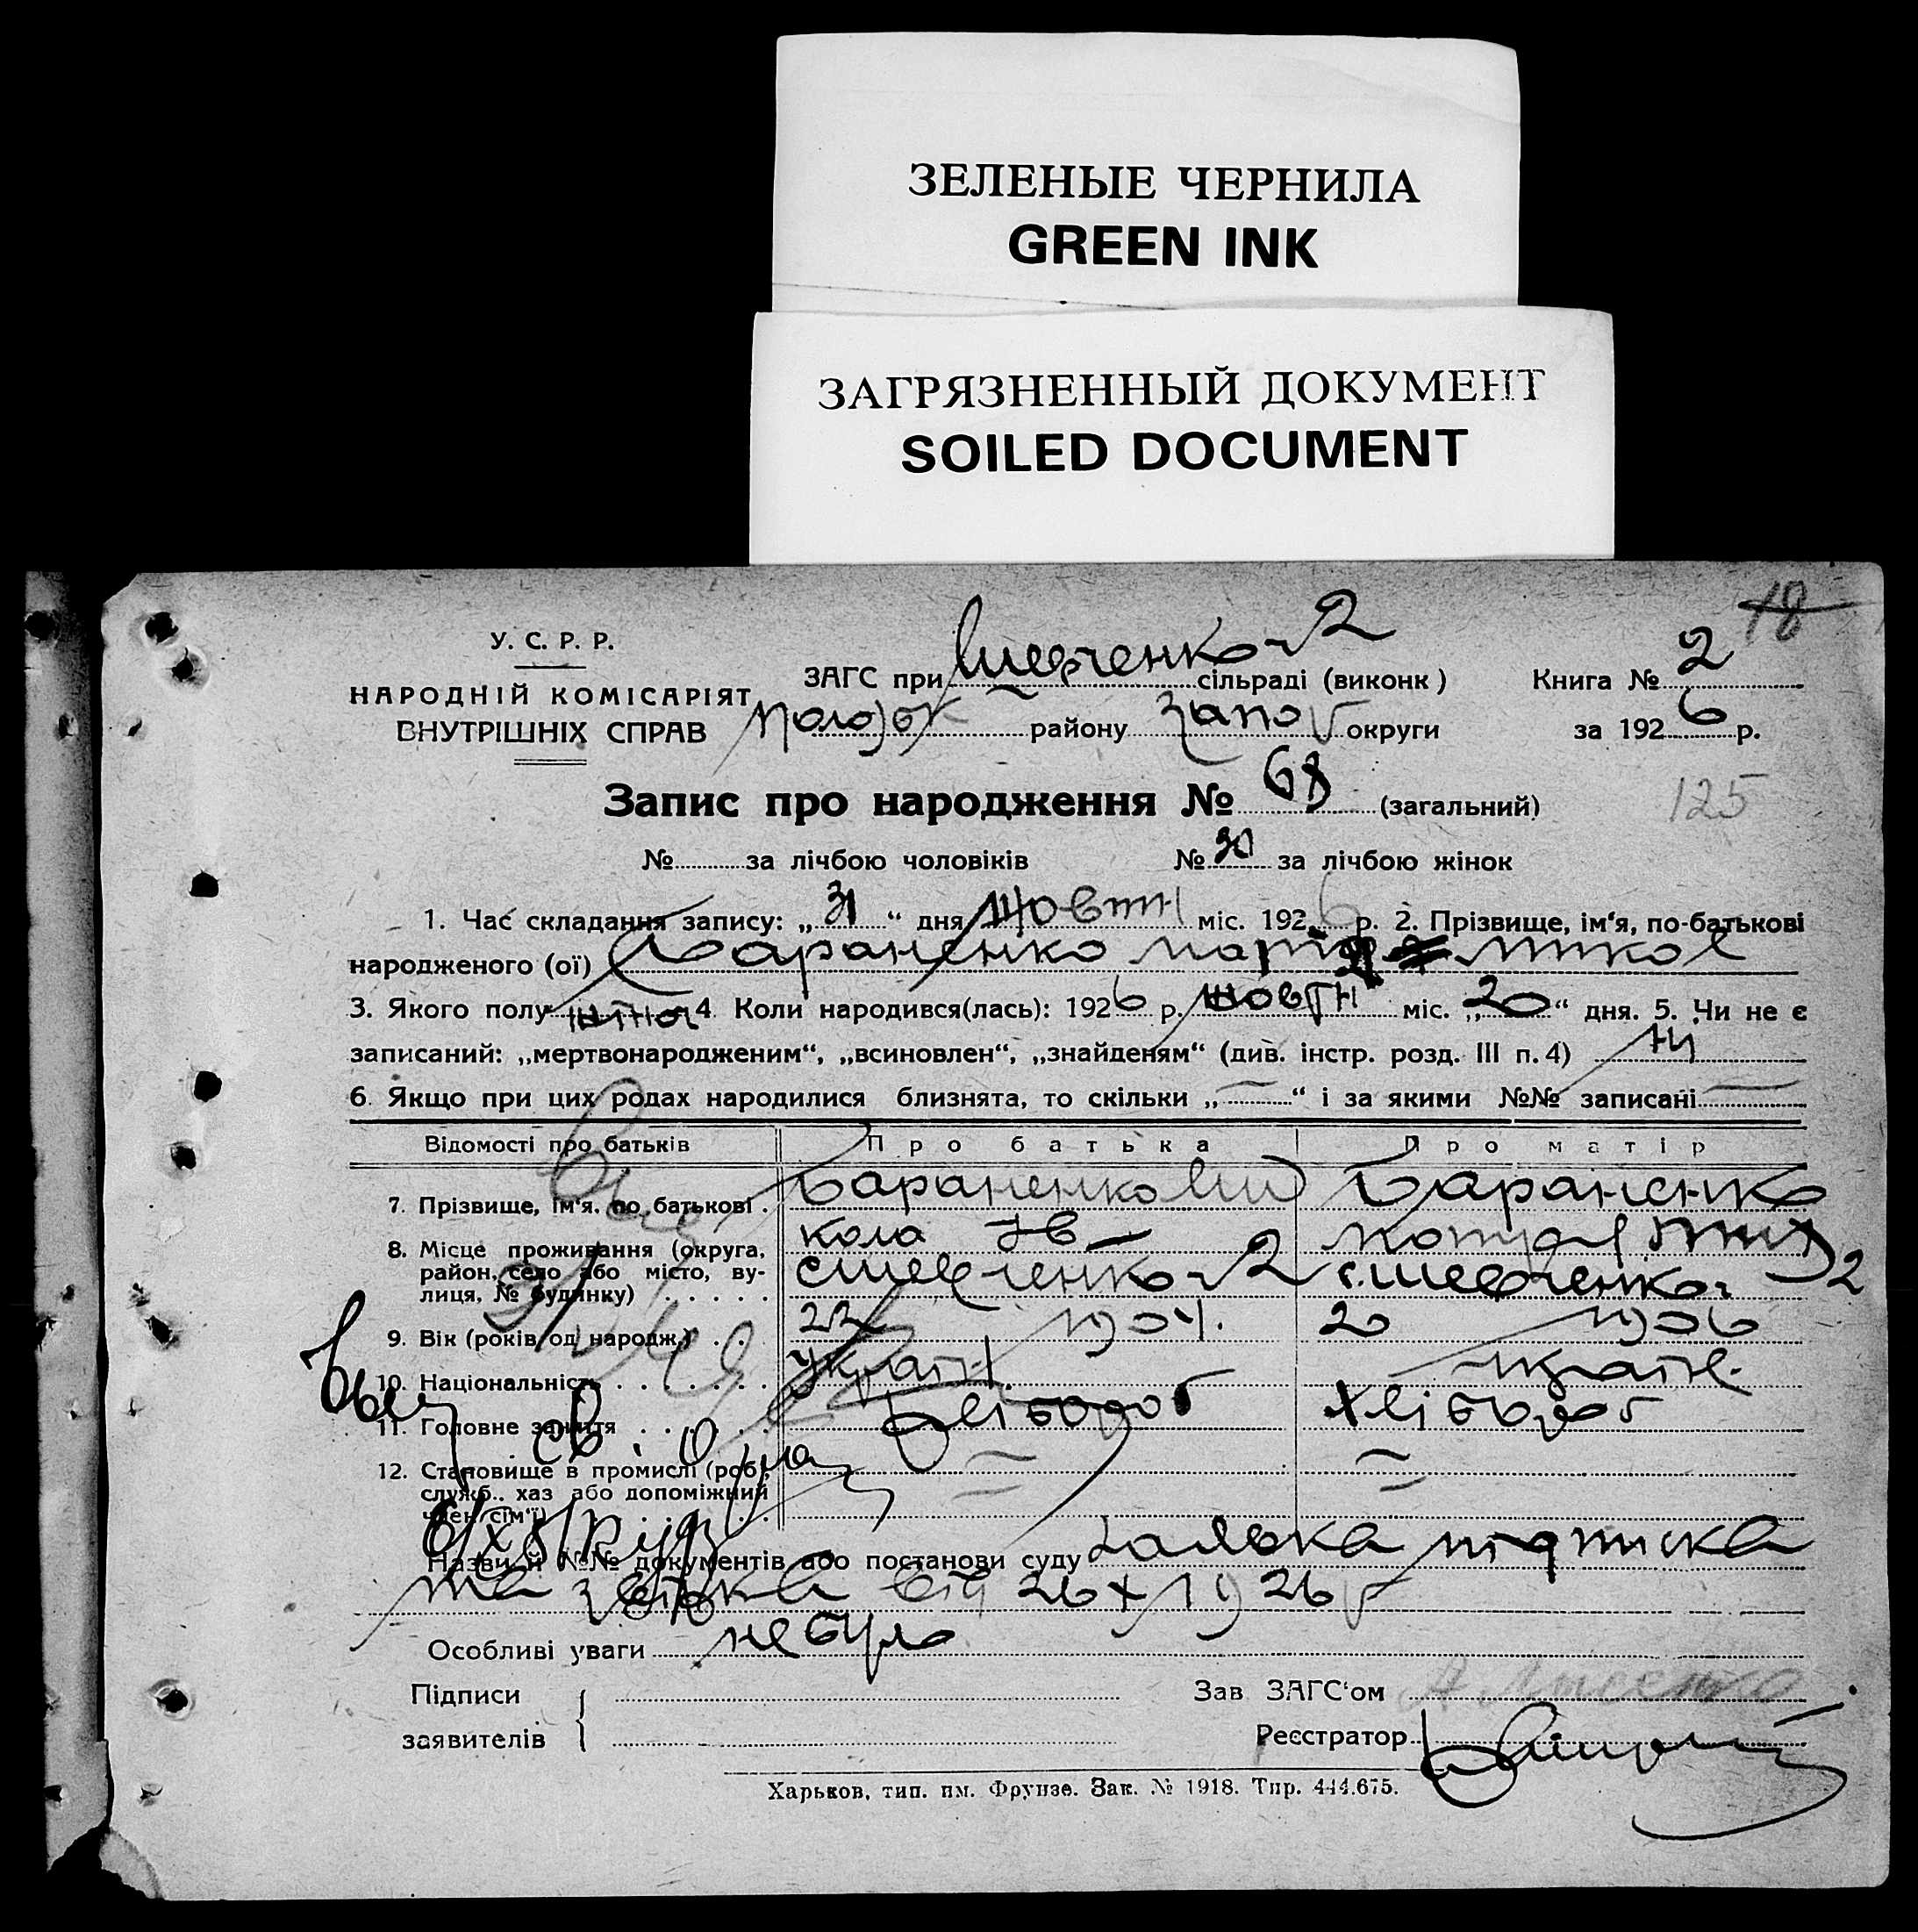 ЗЕЛЕНЫЕ ЧЕРНИЛА
GREEN INK
ЗАГРЯЗНЕННЫЙ ДОКУМЕНТ
SOILED DOCUMENT
18
У. С. Р. Р.
НАРОДНІЙ КОМІСАРІЯТ
ВНУТРІШНІХ СПРАВ
ЗАГС при Шевченко 2 сільраді (виконк) Книга № 2
району Запо округи за 1926 р.
Запис про народження № 68 (загальний)
125
№ за лічбою чоловіків № 30 за лічбою жінок
1. Час складання запису: „31“ дня Жовтн міс. 1926 р. 2. Прізвище, ім‘я, по-батькові
народженого (ої) Бараненко Микол
3. Якого полу жіноч 4. Коли народився(лась): 1926 р. жовтн міс. „20“ дня. 5. Чи не є
записаний: „мертвонародженим“, „всиновлен“, „знайденям“ (див. інстр. розд. III п. 4) ні
6. Якщо при цих родах народилися близнята, то скільки „—“ і за якими №№ записані —
Відомості про батьків Про батька Про матір
7. Прізвище, ім‘я, по батькові . Бараненко Ми Бараненко
кола Ів
8. Місце проживання (округа, район, село або місто, ву-
лиця, № будинку) . . . . . с Шевченко 2 с. Шевченко 2
9. Вік (років од народж.) . . . 22 1904. 20 1906
10. Національність . . . . . . . Украін. украін.
11. Головне заняття . . . . . . Хлібороб Хлібороб
12. Становище в промислі (роб.,
служб., хаз або допоміжний
член сім‘ї) . . . . . . .
Назви й №№ документів або постанови суду підписка
та від 26 X 1926 р
Особливі уваги не було
Підписи Зав ЗАГС‘ом
заявителів Реєстратор
Харьков, тип. им. Фрунзе. Зак. № 1918. Тир. 444.675.